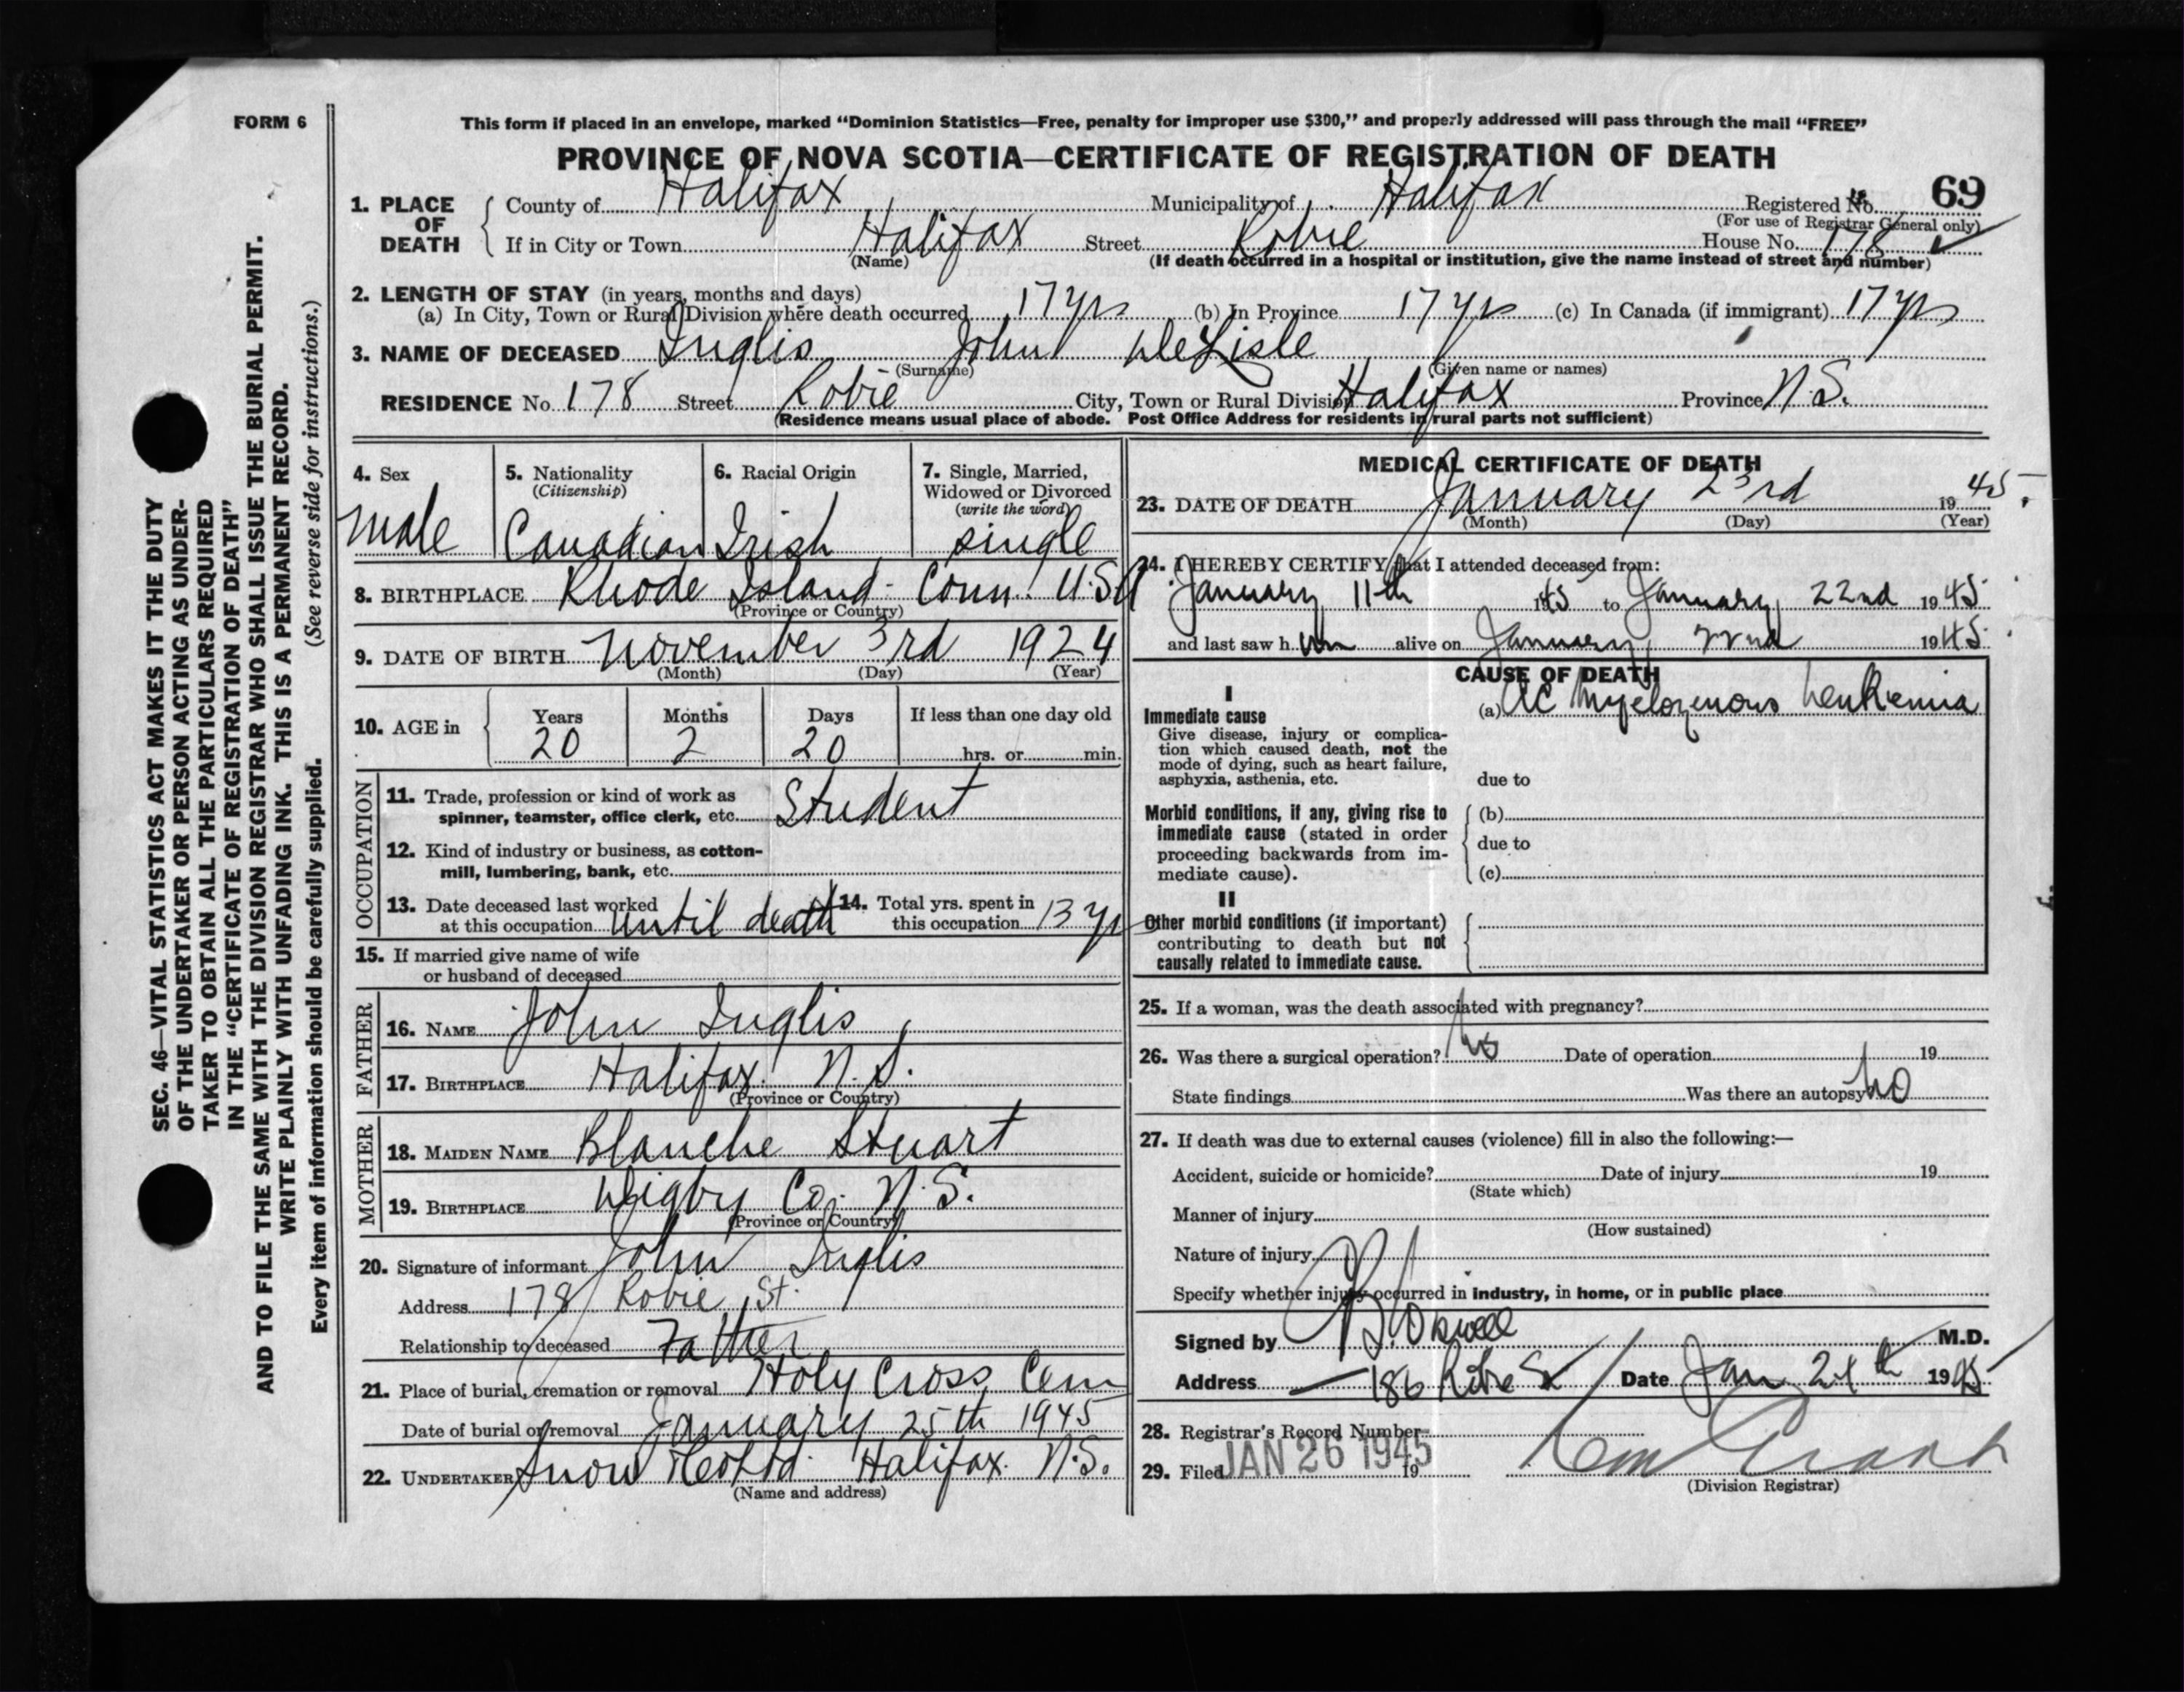 FORM 6
This form if placed in an envelope, marked “Dominion Statistics—Free, penalty for improper use $300,” and properly addressed will pass through the mail “FREE”
PROVINCE OF NOVA SCOTIA—CERTIFICATE OF REGISTRATION OF DEATH
1. PLACE OF DEATH
County of Halifax Municipality of Halifax Registered No. 69
(For use of Registrar General only)
If in City or Town Halifax Street Robie House No. 178
(Name) (If death occurred in a hospital or institution, give the name instead of street and number)
2. LENGTH OF STAY (in years, months and days)
(a) In City, Town or Rural Division where death occurred 17 yrs (b) In Province 17 yrs (c) In Canada (if immigrant) 17 yrs
3. NAME OF DECEASED Inglis John DeLisle
(Surname) (Given name or names)
RESIDENCE No. 178 Street Robie City, Town or Rural Division Halifax Province N.S.
(Residence means usual place of abode. Post Office Address for residents in rural parts not sufficient)
4. Sex
Male
5. Nationality
(Citizenship)
Canadian
6. Racial Origin
Irish
7. Single, Married,
Widowed or Divorced
(write the word)
single
8. BIRTHPLACE Rhode Island Conn. U.S.A
(Province or Country)
9. DATE OF BIRTH November 3rd 1924
(Month) (Day) (Year)
10. AGE in
Years Months Days If less than one day old
20 2 20 hrs. or min.
OCCUPATION
11. Trade, profession or kind of work as
spinner, teamster, office clerk, etc. Student
12. Kind of industry or business, as cotton-
mill, lumbering, bank, etc.
13. Date deceased last worked
at this occupation until death
14. Total yrs. spent in
this occupation 13 yrs
15. If married give name of wife
or husband of deceased
FATHER
16. NAME John Inglis
17. BIRTHPLACE Halifax N.S.
(Province or Country)
MOTHER
18. MAIDEN NAME Blanche Stuart
19. BIRTHPLACE Digby Co. N.S.
(Province or Country)
20. Signature of informant John Inglis
Address 178 Robie St.
Relationship to deceased Father
21. Place of burial, cremation or removal Holy Cross Cem
Date of burial or removal January 25th 1945
22. UNDERTAKER Snow & Co Ltd. Halifax N.S.
(Name and address)
MEDICAL CERTIFICATE OF DEATH
23. DATE OF DEATH January 23rd 1945.
(Month) (Day) (Year)
24. I HEREBY CERTIFY that I attended deceased from:
January 11th 1945 to January 22nd 1945.
and last saw him alive on January 22nd 1945.
CAUSE OF DEATH
I
Immediate cause
Give disease, injury or complica-
tion which caused death, not the
mode of dying, such as heart failure,
asphyxia, asthenia, etc.
(a) Ac Myelogenous Leukemia
due to
Morbid conditions, if any, giving rise to
immediate cause (stated in order
proceeding backwards from im-
mediate cause).
(b)
due to
(c)
II
Other morbid conditions (if important)
contributing to death but not
causally related to immediate cause.
25. If a woman, was the death associated with pregnancy?
26. Was there a surgical operation? No Date of operation 19
State findings Was there an autopsy No
27. If death was due to external causes (violence) fill in also the following:—
Accident, suicide or homicide? Date of injury 19
(State which)
Manner of injury
(How sustained)
Nature of injury
Specify whether injury occurred in industry, in home, or in public place
Signed by M.D.
Address 186 Robie St Date Jan 24th 1945
28. Registrar's Record Number
29. Filed JAN 26 1945 19
(Division Registrar)
SEC. 46—VITAL STATISTICS ACT MAKES IT THE DUTY
OF THE UNDERTAKER OR PERSON ACTING AS UNDER-
TAKER TO OBTAIN ALL THE PARTICULARS REQUIRED
IN THE “CERTIFICATE OF REGISTRATION OF DEATH”
AND TO FILE THE SAME WITH THE DIVISION REGISTRAR WHO SHALL ISSUE THE BURIAL PERMIT.
WRITE PLAINLY WITH UNFADING INK. THIS IS A PERMANENT RECORD.
Every item of information should be carefully supplied. (See reverse side for instructions.)